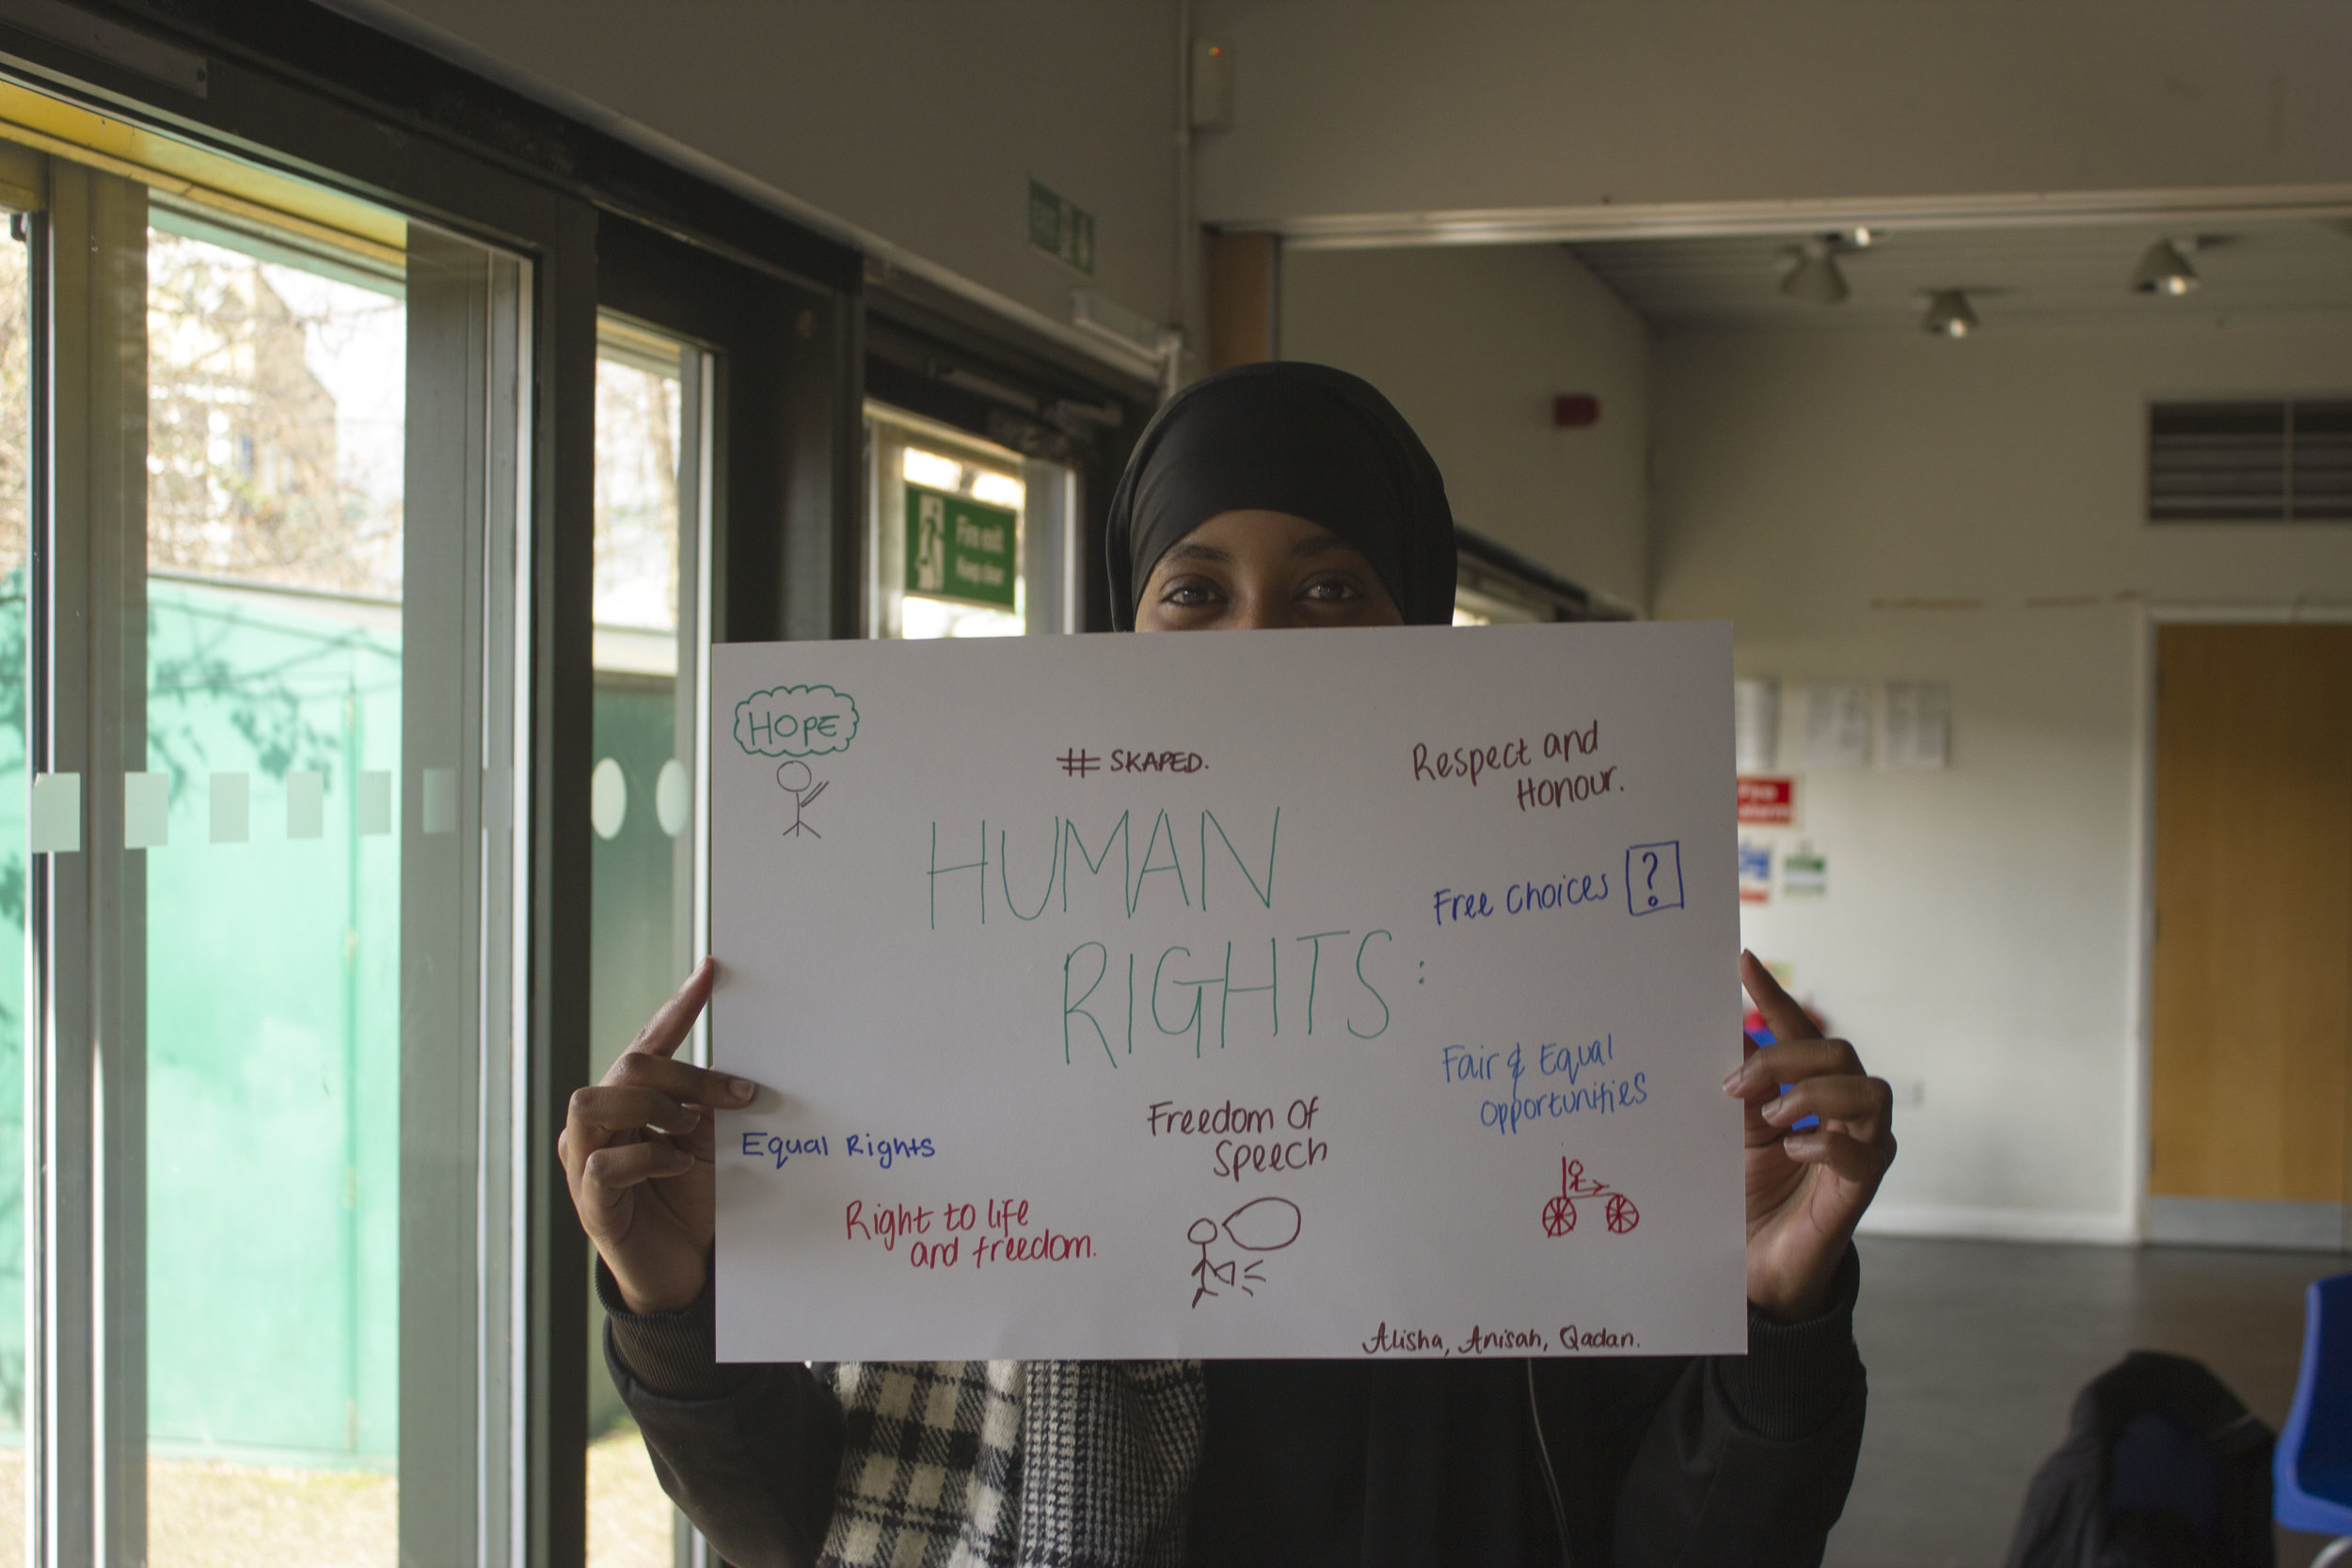 EXIT
Fire exit
Keep clear
HOPE
# SKAPED.
Respect and
Honour.
HUMAN
RIGHTS:
Free Choices ?
Fair & Equal
Opportunities
Freedom Of
Speech
Equal Rights
Right to life
and freedom.
Alisha, Anisah, Qadan.
Fire
alarm